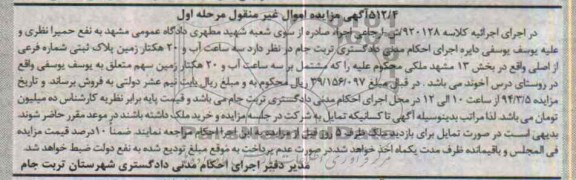 ۵۱۲/۴آگهی مزایده اموال غیر منقول مرحله اول
در اجرای اجرائیه کلاسه ۹۲۰۱۲۸ ش اجرا صادره از سوی شعبه شهید مطهری دادگاه عمومی مشهد به نفع حمیرا نظری و
علیه یوسف یوسفی دایره اجرای احکام مدنی دادگستری تربت جام در نظر دارد سه ساعت آب و ۲۰ هکتار زمین پلاک ثبتی شماره فرعی
از اصلی واقع در بخش ۱۳ مشهد ملکی محکوم علیه را که مشتمل بر سه ساعت آب و ۲۰ هکتار زمین سهم متعلق به یوسف یوسفی واقع
در روستای درس آخوند می باشد . در قبال مبلغ ۳۹/۱۵۶/۰۹۷ ریال محکوم به و مبلغ ریال بابت نیم عشر دولتی به فروش برساند. و تاریخ
مزایده ۹۴/۳/۵ از ساعت ۱۰ الی ۱۲ در محل اجرای احکام مدنی دادگستری تربت جام می باشد و قیمت پایه برابر نظریه کارشناس ده میلیون
تومان می باشد. لذا مراتب بدینوسیله آگهی تا کسانیکه تمایل به شرکت در جلسه مزایده و خرید ملک داشته باشند در موعد مقرر حاضر شوند.
بدیهی است در صورت تمایل برای بازدید ملک ظرف ۵ روز قبل از مزایده به اجرا احکام مراجعه نمایند. ضمناً ۱۰درصد قیمت مزایده
فی المجلس و باقیمانده ظرف مدت یکماه اخذ خواهد شد در صورت عدم پرداخت به موقع مبلغ تودیع شده به نفع دولت ضبط خواهد شد.
مدیر دفتر اجرای احکام مدنی دادگستری شهرستان تربت جام